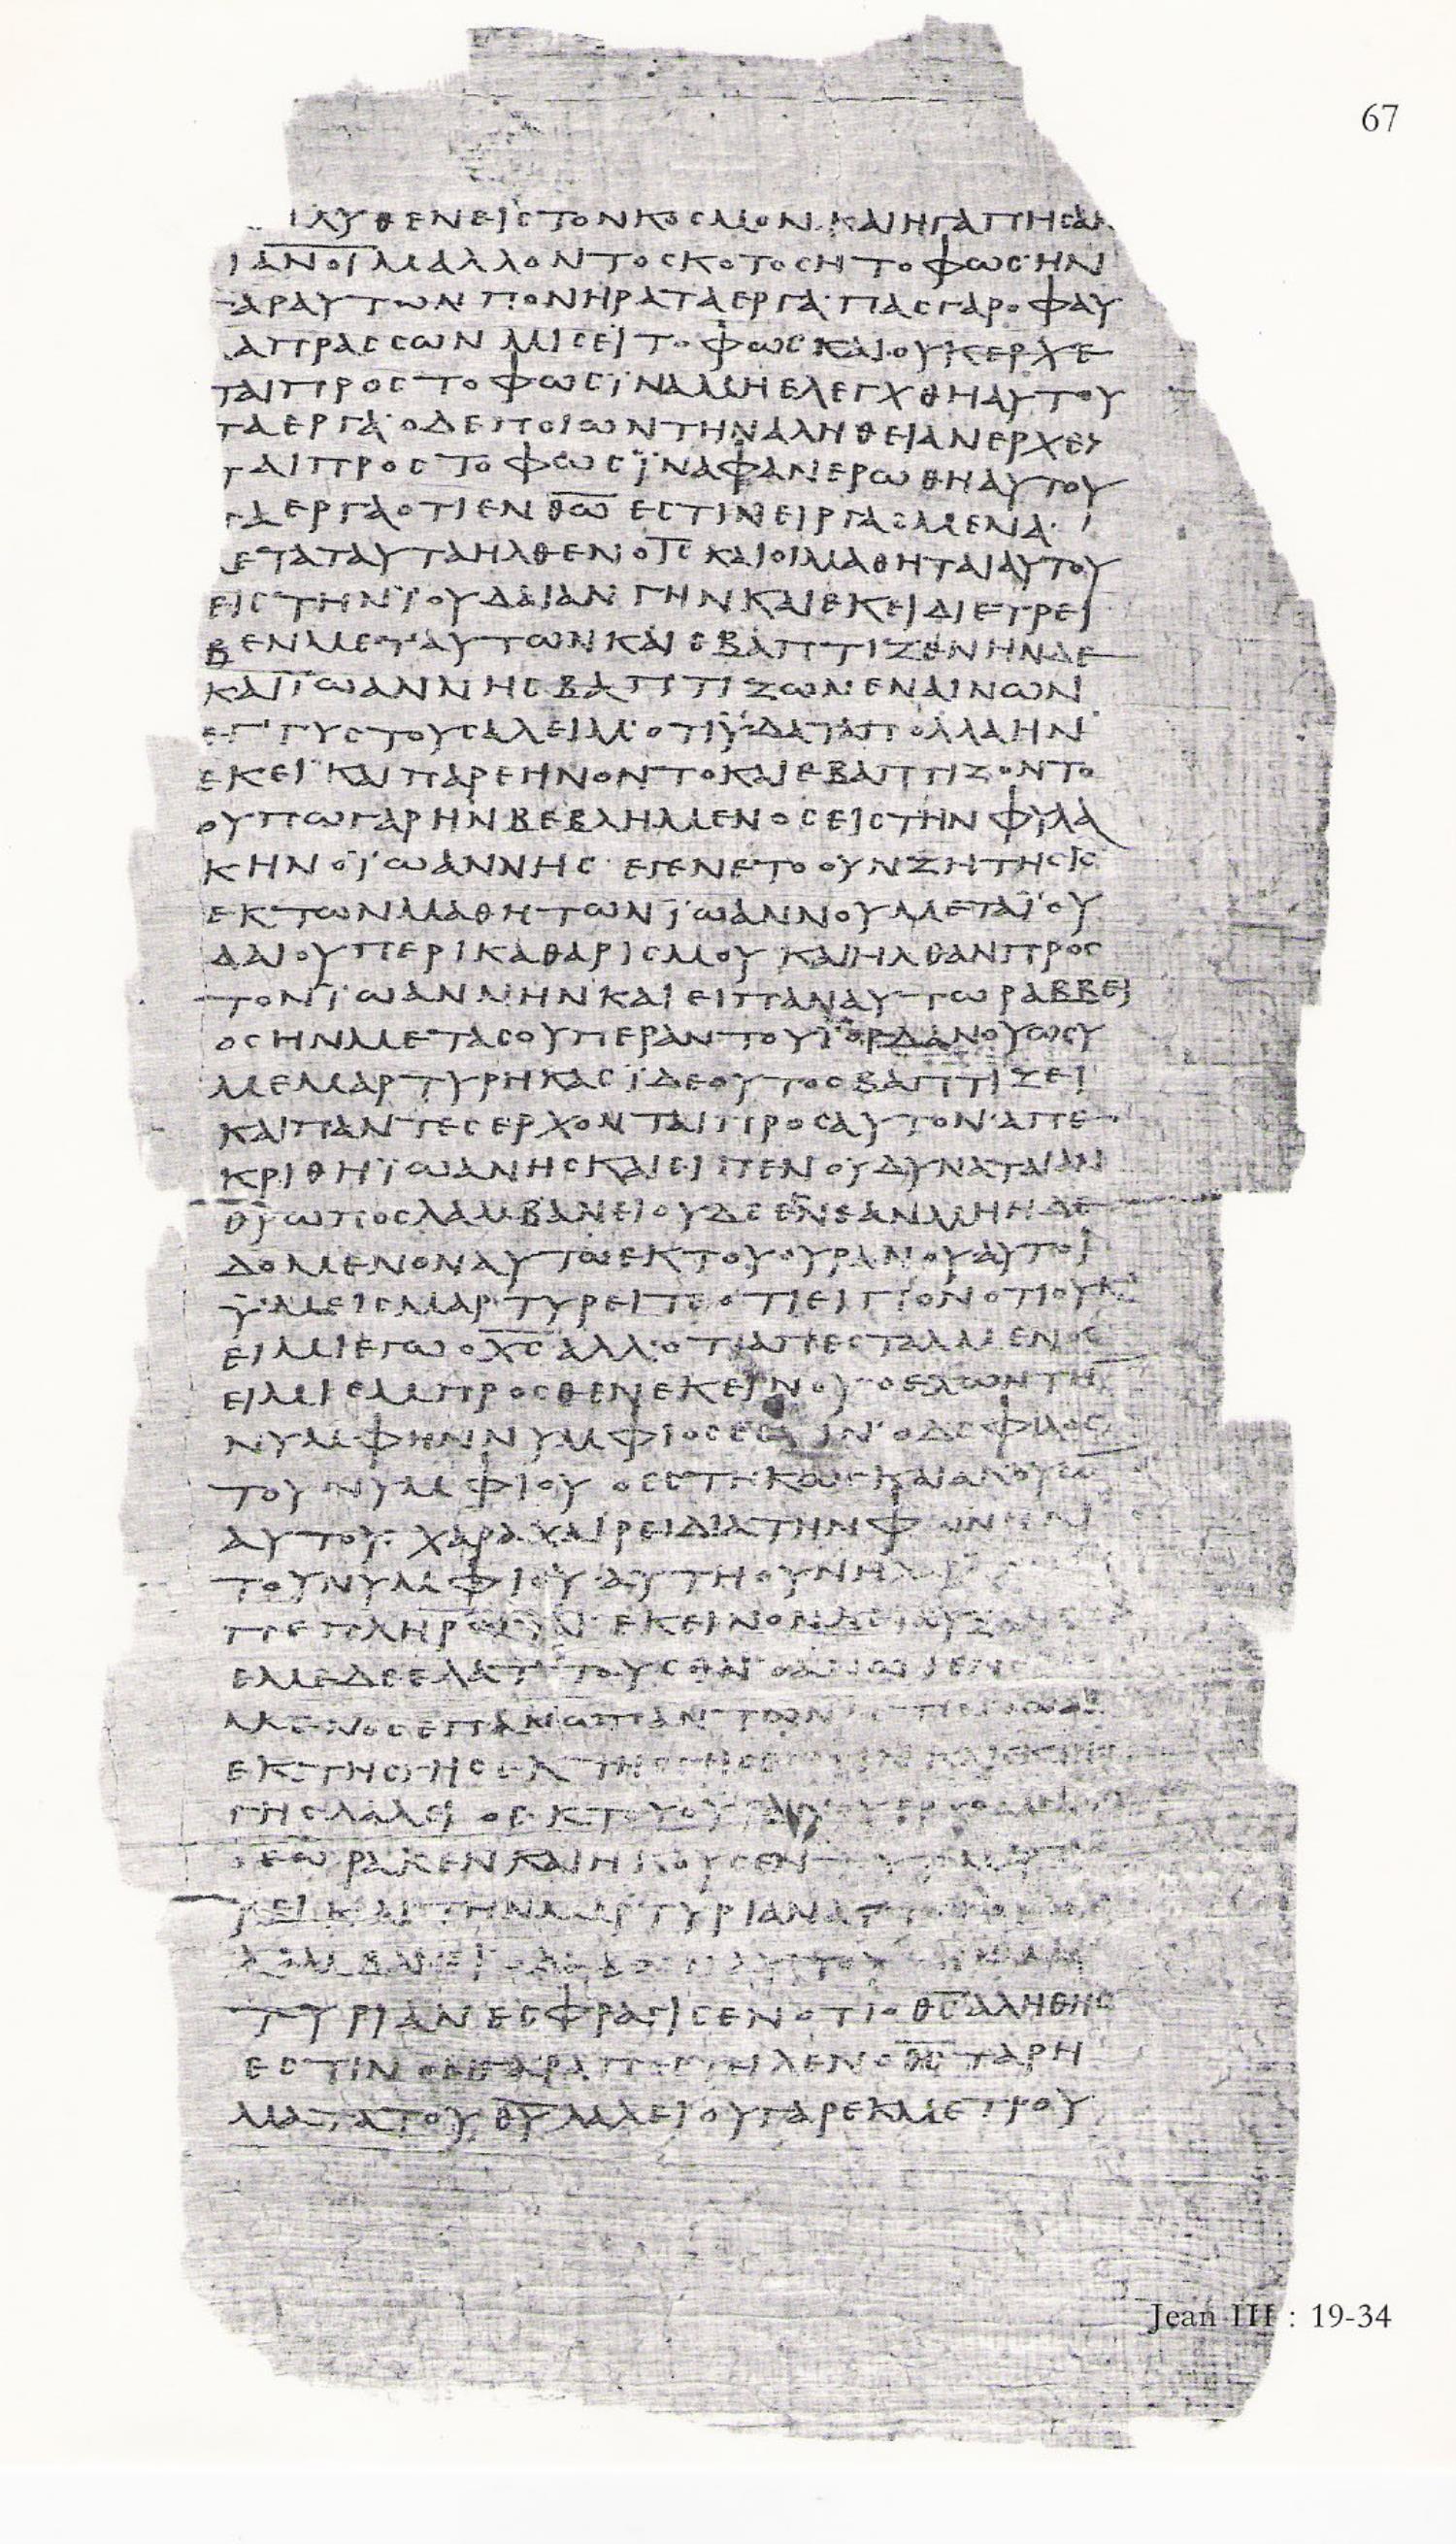 67
λυθενειστονκοσμον·καιηγαπησαν
ιανοιμαλλοντοσκοτοσητοφωσ·ην
γαραυτωνπονηραταεργα·πασγαροφαυ
λαπρασσωνμισειτοφωσκαιουκερχε
ταιπροστοφωσϊναμηελεγχθηαυτου
ταεργα·οδεποιωντηναληθειανερχε
ταιπροστοφωσϊναφανερωθηαυτου
ταεργαοτιενθ̅ω̅εστινειργασμενα·
μεταταυταηλθενοι̅σ̅καιοιμαθηταιαυτου
ειστηνϊουδαιανγηνκαιεκειδιετρει
βενμεταυτωνκαιεβαπτιζενηνδε
καιϊωαννησβαπτιζωνεναινων
εγγυστουσαλειμ·οτιϋδαταπολλαην
εκει·καιπαρεγινοντοκαιεβαπτιζοντο
ουπωγαρηνβεβλημενοσειστηνφυλα
κηνοϊωαννησ·εγενετοουνζητησισ
εκτωνμαθητωνϊωαννουμεταϊου
δαιουπερικαθαρισμουκαιηλθανπροσ
τονϊωαννηνκαιειπαναυτωραββει
οσηνμετασουπεραντουϊορδανουωσυ
μεμαρτυρηκασϊδεουτοσβαπτιζει
καιπαντεσερχονταιπροσαυτον·απε
κριθηϊωανησκαιειπενουδυναταιαν
θρωποσλαμβανεινουδεενεανμηηδε
δομενοναυτωεκτουουρανουαυτοι
ϋμεισμαρτυρειτεοτιειπονοτιουκ
ειμιεγωοχ̅σ̅αλλοτιαπεσταλμενοσ
ειμιεμπροσθενεκεινου·οεχωντην
νυμφηννυμφιοσεστιν·οδεφιλοσ
τουνυμφιουοεστηκωσκαιακουων
αυτου·χαραχαιρειδιατηνφωνην
τουνυμφιου·αυτηουνη
πεπληρωται·εκεινον
εμεδεελαττουσθαιοανωθεν
μενοσεπανωπαντων
εκτησγησεκτησγησ
γησλαλειοεκτουου
οεωρακενκαιηκουσεν
ρεικαιτηνμαρτυριαν
λαμβανει
τυριανεσφραγισενοτιοθ̅σ̅αληθησ
εστινονγαραπεστιλενοθ̅σ̅ταρη
ματατουθ̅υ̅λαλειουγαρεκμετρου
Jean III : 19-34